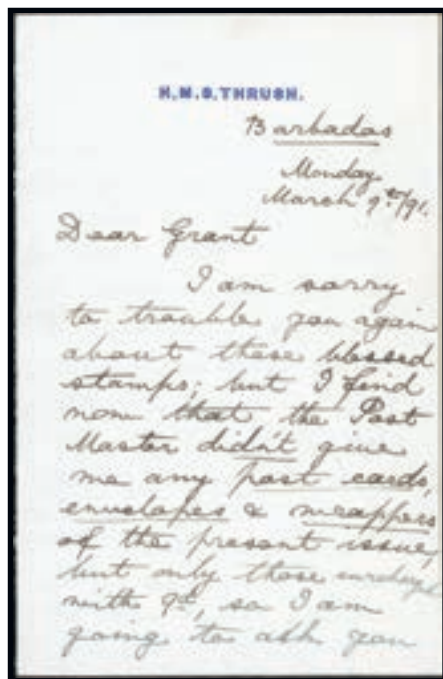 H.M.S. THRUSH.
Barbadas
Monday
March 9th/91.
Dear Grant
I am sorry
to trouble you again
about these blessed
stamps; but I find
now that the Post
Master didn't give
me any post cards,
envelopes & wrappers
of the present issue,
but only those
with 9d, so I am
going to ask you